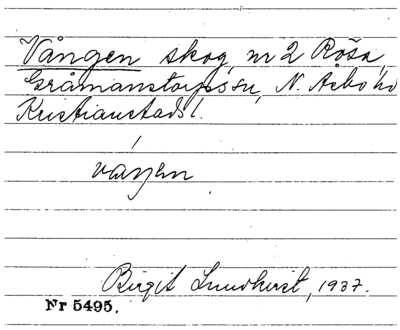 Vången skog, nr 2 Röša,
Gråmanstorps sn, N. Asbo hd
Kristianstads l.
vaŋən
Birgit Lundkvist, 1937.
Nr 5495.